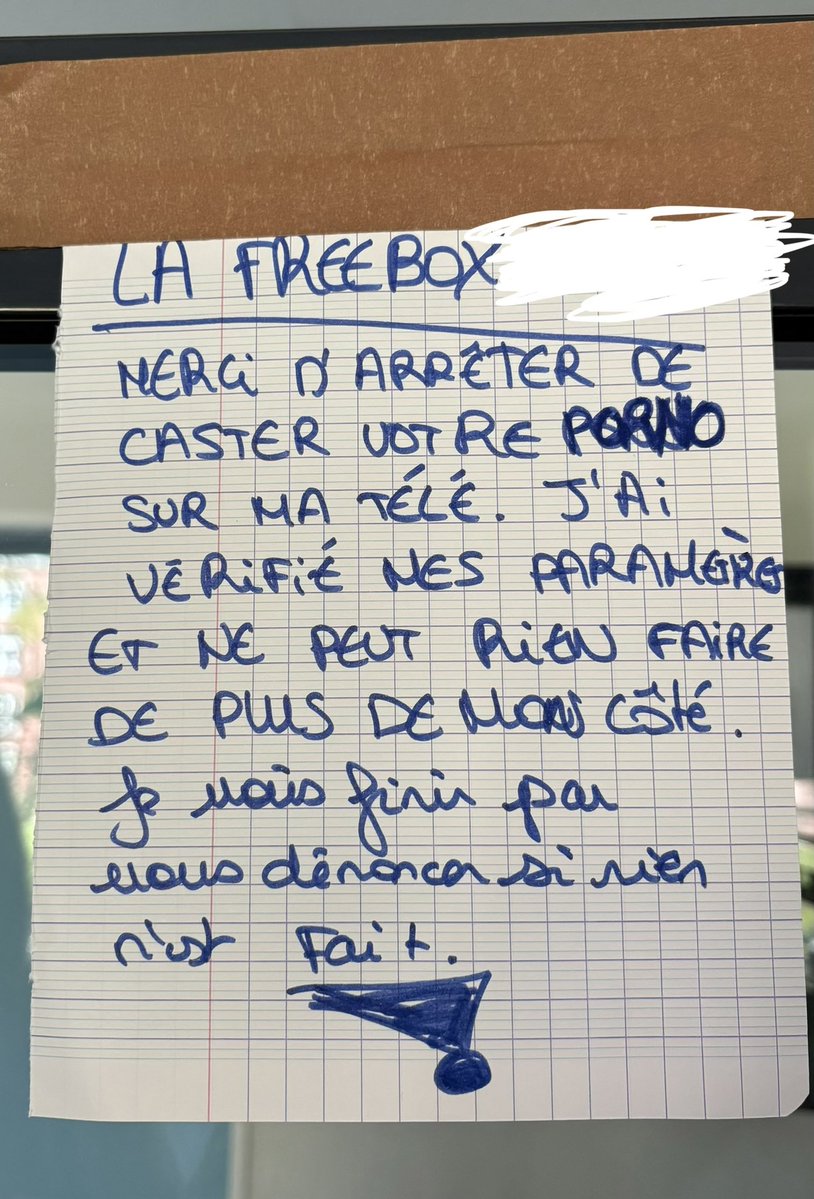 LA FREEBOX
MERCI D'ARRÊTER DE
CASTER VOTRE PORNO
SUR MA TÉLÉ. J'AI
VÉRIFIÉ MES PARAMÈTRES
ET NE PEUT RIEN FAIRE
DE PLUS DE MON CÔTÉ.
Je vais finir par
vous dénoncer si rien
n'est Fait.